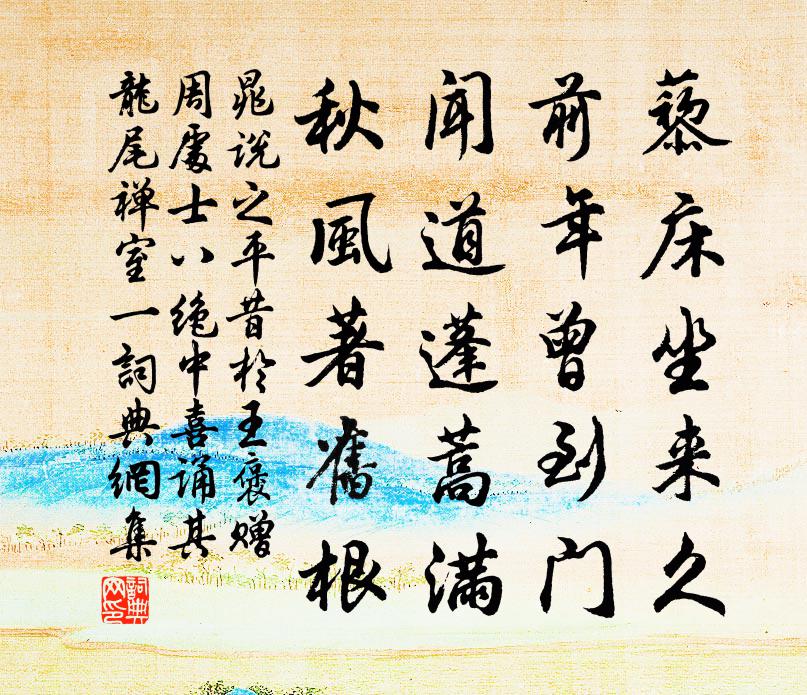 藜床坐来久
前年曾到门
闻道蓬蒿满
秋風著舊根
晁说之平昔於王褒赠
周處士八絶中喜诵其
龍尾禅室一詞典網集
詞典网印